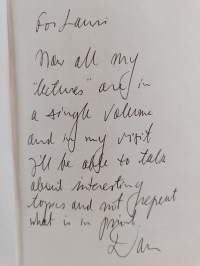 For Lauri
Now all my
"lectures" are in
a single volume
and in my visit
I'll be able to talk
about interesting
topics and not repeat
what is in print
Dan